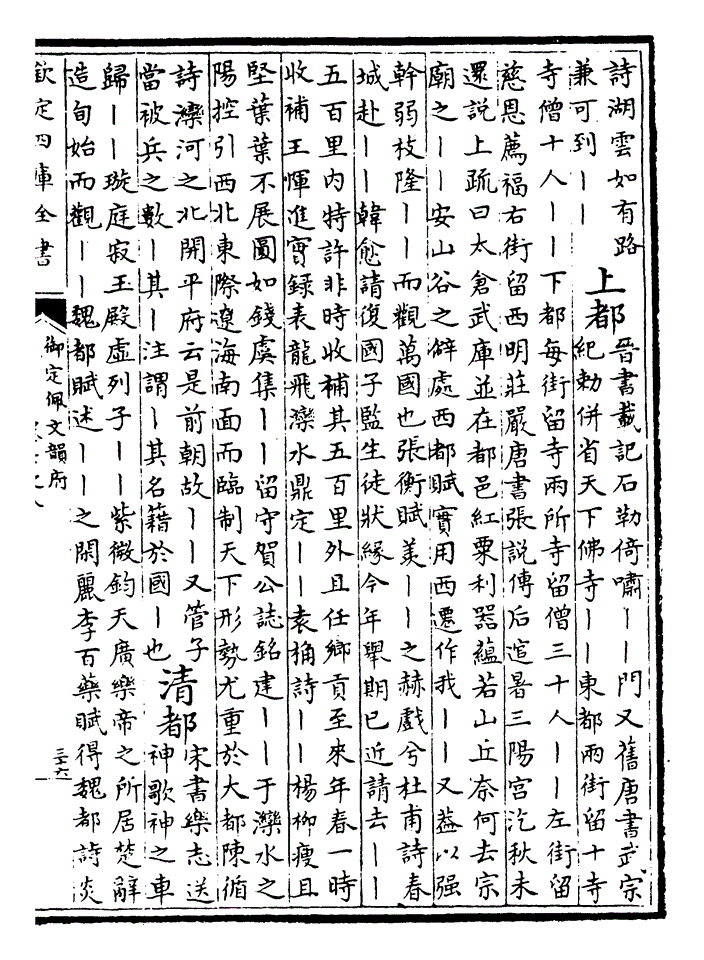 詩湖雲如有路
兼可到｜｜
上都
晉書載記石勒倚嘯｜｜門又舊唐書武宗
紀勅併省天下佛寺｜｜東都兩街留十寺
寺僧十人｜｜下都每街留寺兩所寺留僧三十人｜｜左街留
慈恩薦福右街留西明莊嚴唐書張說傳后逭暑三陽宮汔秋未
還說上疏曰太倉武庫並在都邑紅粟利器蘊若山丘奈何去宗
廟之｜｜安山谷之僻處西都賦實用西遷作我｜｜又益以强
幹弱枝隆｜｜而觀萬國也張衡賦羙｜｜之赫戲兮杜甫詩春
城赴｜｜韓愈請復國子監生徒狀緣今年舉期已近請去｜｜
五百里内特許非時收補其五百里外且任鄉貢至來年春一時
收補王惲進實録表龍飛灤水鼎定｜｜袁桷詩｜｜楊柳瘦且
堅葉葉不展圓如錢虞集｜｜留守賀公誌銘建｜｜于灤水之
陽控引西北東際遼海南面而臨制天下形勢尤重於大都陳循
詩灤河之北開平府云是前朝故｜｜又管子
當被兵之數｜其｜注謂｜其名籍於國｜也
清都
宋書樂志送
神歌神之車
歸｜｜璇庭寂玉殿虛列子｜｜紫微鈞天廣樂帝之所居楚辭
造旬始而觀｜｜魏都賦述｜｜之閑麗李百藥賦得魏都詩炎
欽定四庫全書
御定佩文韻府
三十六